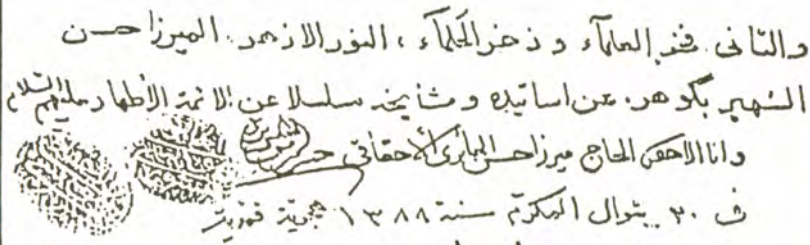 والثانى فخر العلمآء و ذخر الحكمآء ، النور الازهر . الميرزا حسن
الشهير بگوهر . عن اساتيذه و مشايخه سلسلا عن الائمة الأطهار عليهم السلام
وانا الاحقر الحاج ميرزا حسن الحائرى الاحقاقى
فى ٣٠ شوال المكرم سنة ١٣٨٨ هجرية قمرية